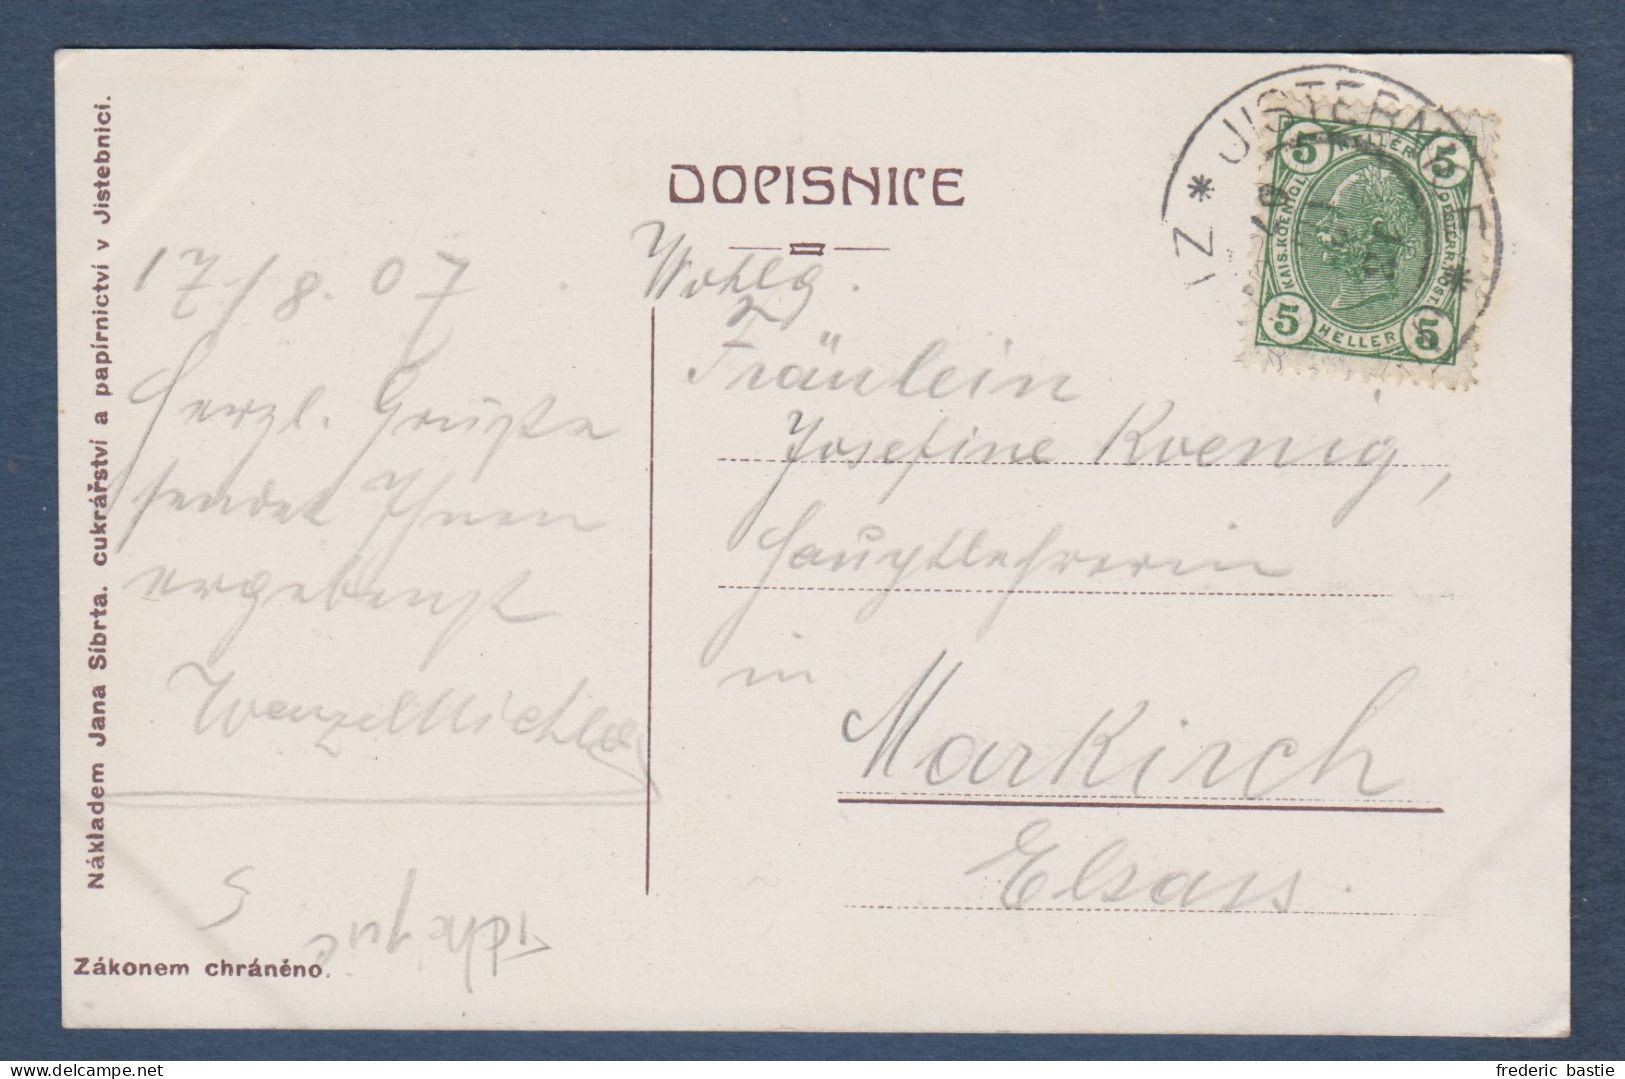 DOPISNICE
Nákladem Jana Síbrta. cukrářství a papírnictví v Jistebnici.
Zákonem chráněno.
17/8.07.
Herzl. Grüße
sendet Ihnen
ergebenst
Wenzel
Wohlg.
Fräulein
Josefine Koenig,
Hauptlehrerin
in
Markirch
Elsass.
JISTEBN
KAIS.KOENIGL. OESTERR.POST.
5 HELLER 5
5 HELLER 5
frederic bastie